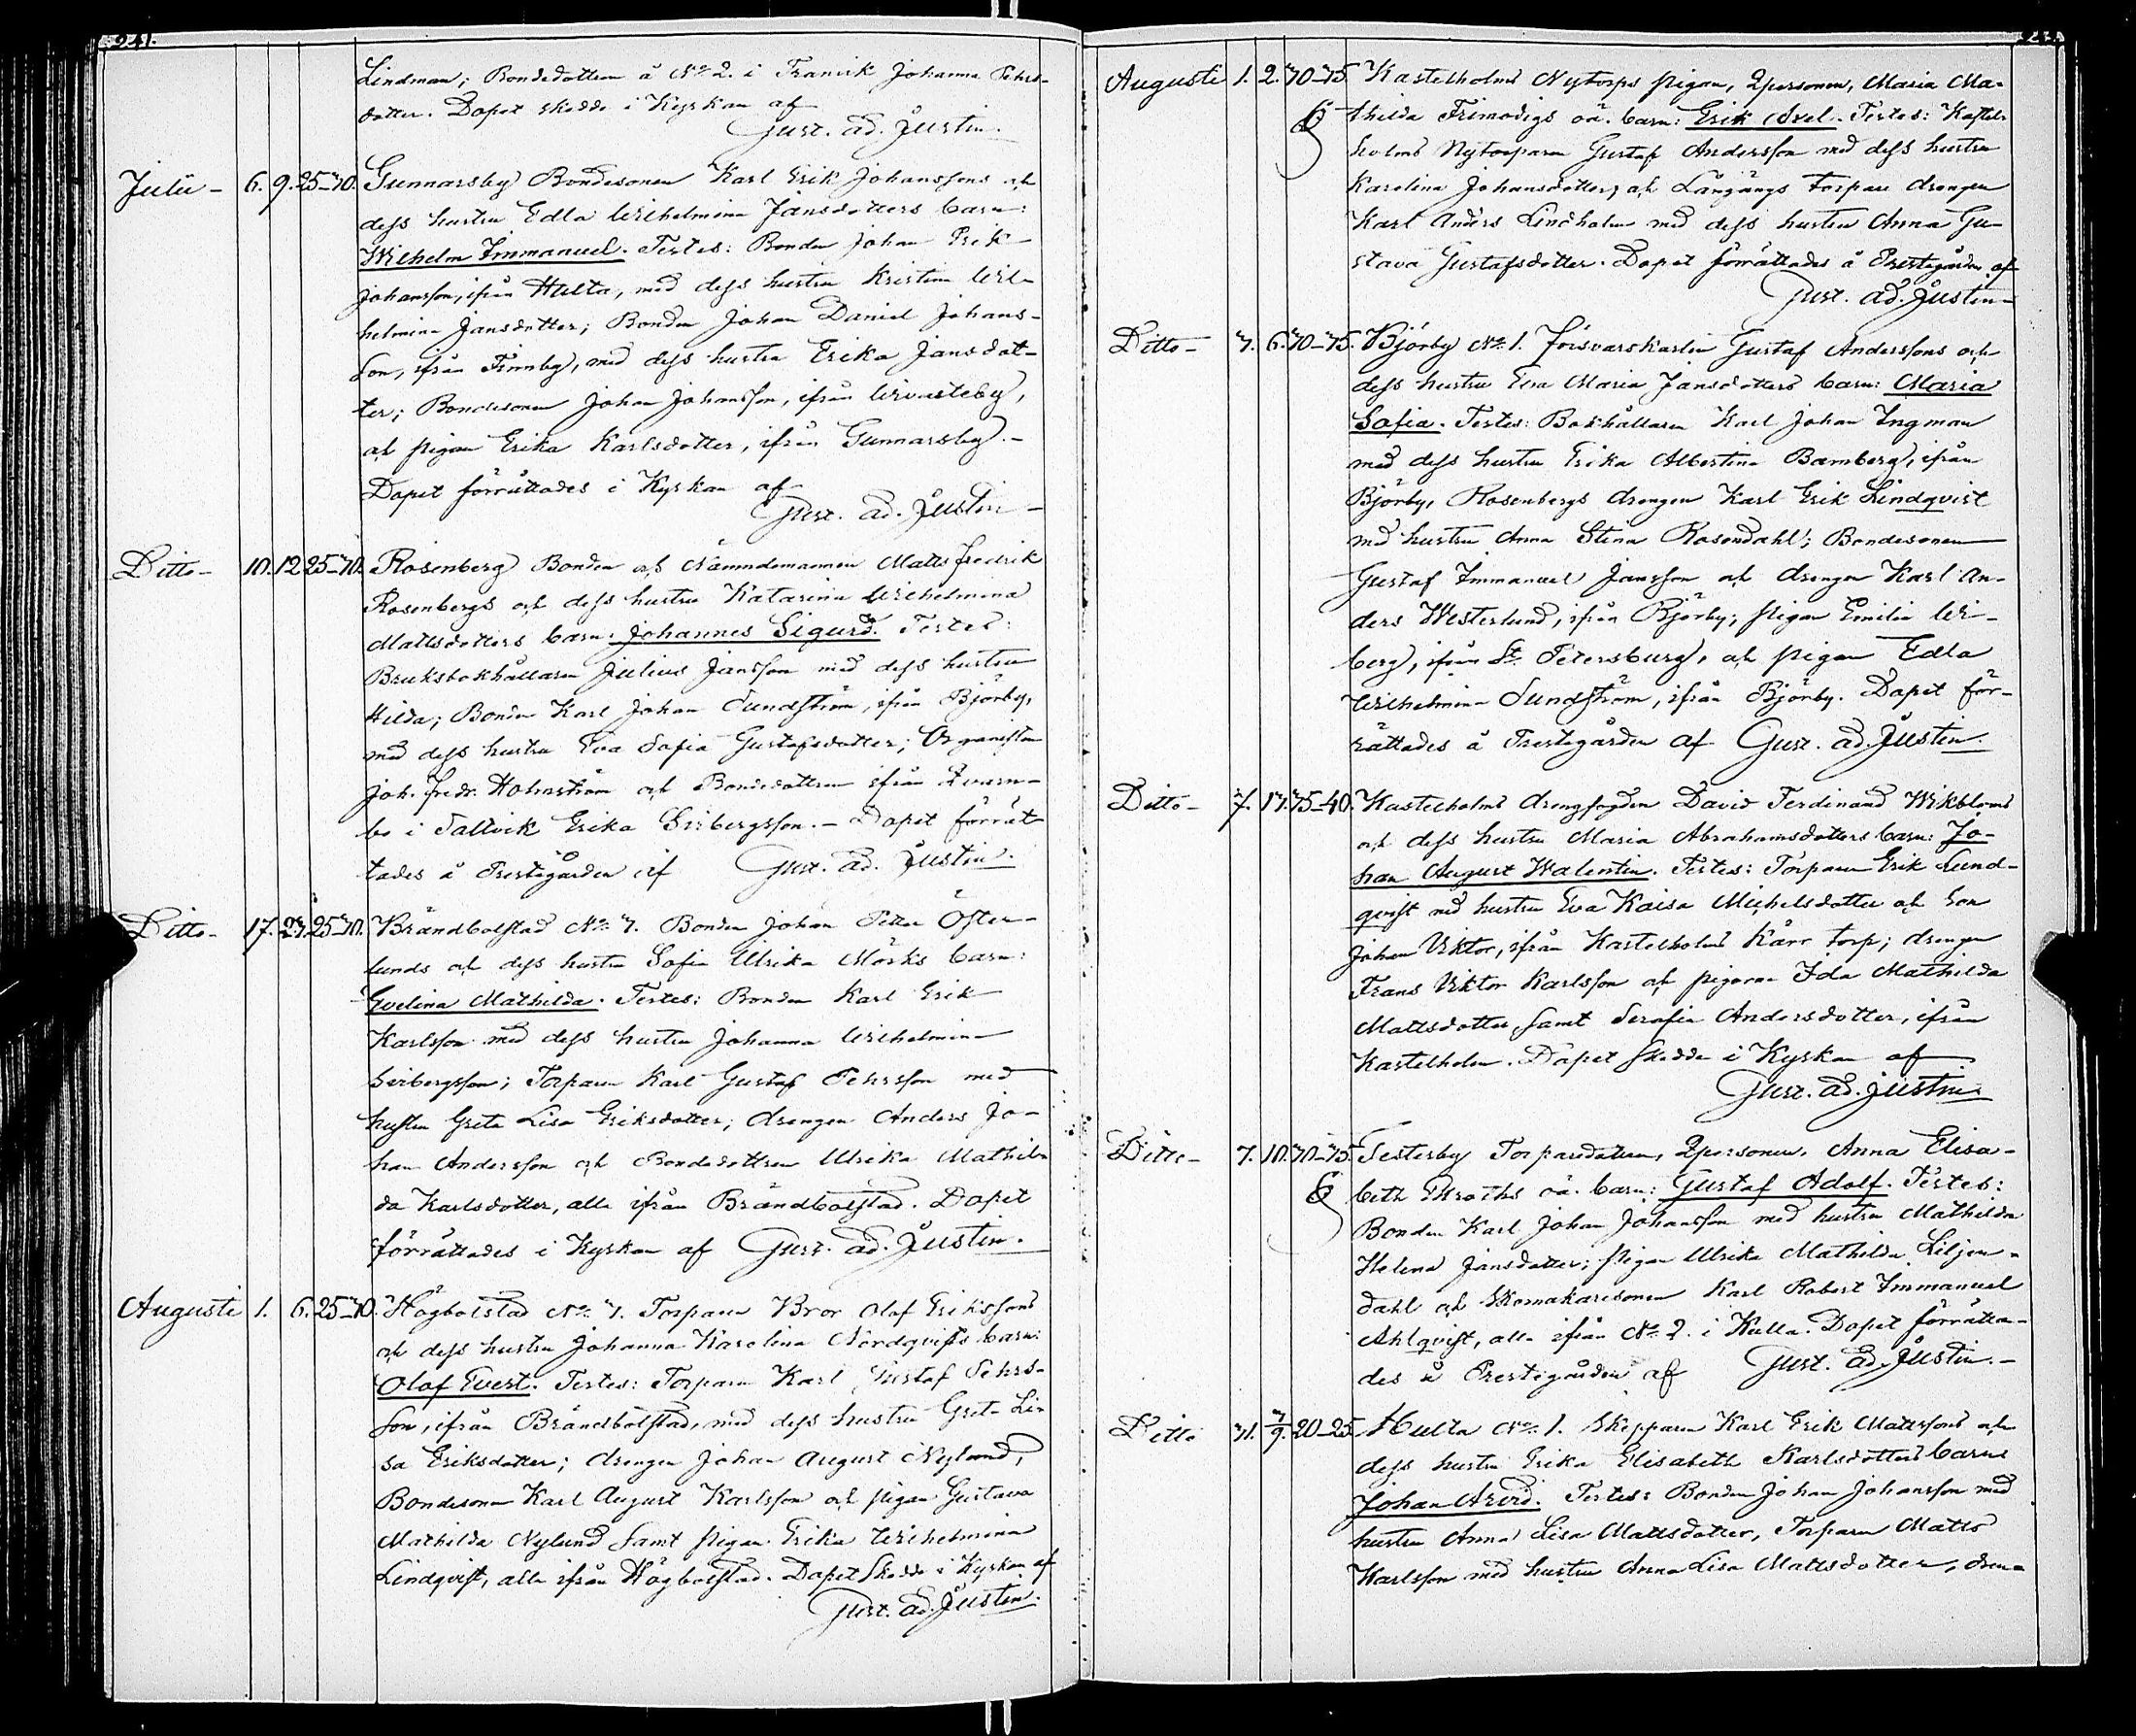 Lindman; Bondedottern å No 2. i Tranvik Johanna Pehrs-
dotter. Dopet skedde i Kyrkan af
Gust. Ad. Justin.
Julii - 6. 9. 25-70. Gunnarsby Bondesonen Karl Erik Johanssons och
dess hustru Edla Wilhelmina Jansdotters barn:
Wilhelm Immanuel. Testes: Bonden Johan Erik
Johansson, ifrån Hulta, med dess hustru Kristina Wil-
helmina Jansdotter; Bonden Johan Daniel Johans-
son, ifrån Finnby, med dess hustru Erika Jansdot-
ter; Bondesonen Johan Johansson, ifrån
och pigan Erika Karlsdotter, ifrån Gunnarsby.-
Dopet förrättades i Kyrkan af
Gust. Ad. Justin -
Ditto - 10. 12 25-70. Rosenberg Bonden och Nämndemannen Matts Fredrik
Rosenbergs och dess hustru Katarina Wilhelmina
Mattsdotters barn: Johannes Sigurd. Testes:
Bruksbokhållaren Julius Jansson med dess hustru
Hilda; Bonden Karl Johan Sundström, ifrån Björby,
med dess hustru Eva Sofia Gustafsdotter; Organisten
Joh. Fredr. Holmström och Bondedottren ifrån Qvarn-
bo i Saltvik Erika Sirbergsson.- Dopet förrät-
tades å Prestegården af Gust. Ad. Justin.
Ditto - 17. 27. 25-70. Brändbolstad No 7. Bonden Johan Petter Öster-
lunds och dess hustru Sofia Ulrika Mörks barn:
Evelina Mathilda. Testes: Bonden Karl Erik
Karlsson med dess hustru Johanna Wilhelmina
Sirbergsson; Torparen Karl Gustaf Pehrsson med
hustru Greta Lisa Eriksdotter; drengen Anders Jo-
han Andersson och Bondedottren Ulrika Mathil-
da Karlsdotter, alla ifrån Brändbolstad. Dopet
förrättades i Kyrkan af Gust. Ad. Justin.
Augusti 1. 6. 25-70. Högbolstad No 7. Torparen Bror Olof Erikssons
och dess hustru Johanna Karolina Nordqvists barn:
Olof Evert. Testes: Torparen Karl Gustaf Pehrs-
son, ifrån Brändbolstad, med dess hustru Greta Li-
sa Eriksdotter; drengen Johan August Nylund,
Bondesonen Karl August Karlsson och pigan Gustava
Mathilda Nylund samt pigan Erika Wilhelmina
Lindqvist, alla ifrån Högbolstad. Dopet skedde i Kyrkan af
Gust. Ad. Justin.
Augusti 1. 2. 70-75 Kastelholms Nytorps pigan, Qpersonen, Maria Ma-
thilda Frimodigs oä. barn: Erik Axel. Testes: Kastel-
holms Nytorparen Gustaf Andersson med dess hustru
Karolina Johansdotter, och Långängs Torpare drengen
Karl Anders Lindholm med dess hustru Anna Gu-
stava Gustafsdotter. Dopet förrättades å Prestegården af
Gust. Ad. Justin -
Ditto - 7. 6. 70-75. Björby No 1. Försvarskarlen Gustaf Anderssons och
dess hustru Eva Maria Jansdotters barn: Maria
Sofia. Testes: Bokhållaren Karl Johan Ingman
med dess hustru Erika Albertina Bamberg, ifrån
Björby, Rosenbergs drengen Karl Erik Lindqvist
med hustru Anna Stina Rosendahl; Bondesonen
Gustaf Immanuel Jansson och drengen Karl An-
ders Westerlund, ifrån Björby; pigan Emilia Wi-
berg, ifrån St. Petersburg, och pigan Edla
Wilhelmina Sundström, ifrån Björby. Dopet för-
rättades å Prestegården af Gust. Ad. Justin.
Ditto - 7. 17. 75-40. Kastelholms drengfogden David Ferdinand Wikbloms
och dess hustru Maria Abrahamsdotters barn: Jo-
han August Walentin. Testes: Torparen Erik Lund-
qvist med hustru Eva Kaisa Michelsdotter och son
Johan Viktor, ifrån Kastelholms Kärr torp; drengen
Frans Viktor Karlsson och pigorna Ida Mathilda
Mattsdotter, samt Serafia Andersdotter, ifrån
Kastelholm. Dopet skedde i Kyrkan af
Gust. Ad. Justin.
Ditto - 7. 10. 70-75. Testerby Torparedottren, Qpersonen, Anna Elisa-
beth oä. barn: Gustaf Adolf. Testes:
Bonden Karl Johan Johansson med hustru Mathilda
Helena Jansdotter; pigan Ulrika Mathilda Liljen-
dahl och Skomakaresonen Karl Robert Immanuel
Ahlqvist, alla ifrån No 2. i Kulla. Dopet förrätta-
des å Prestegården af Gust. Ad. Justin.-
Ditto 31. 7/9. 20-25. Hulta No 1. Skepparen Karl Erik Mattssons och
dess hustru Erika Elisabeth Karlsdotters barn
Johan Arvid. Testes: Bonden Johan Johansson med
hustru Anna Lisa Mattsdotter, Torparen Matts
Karlsson med hustru Anna Lisa Mattsdotter, dren-